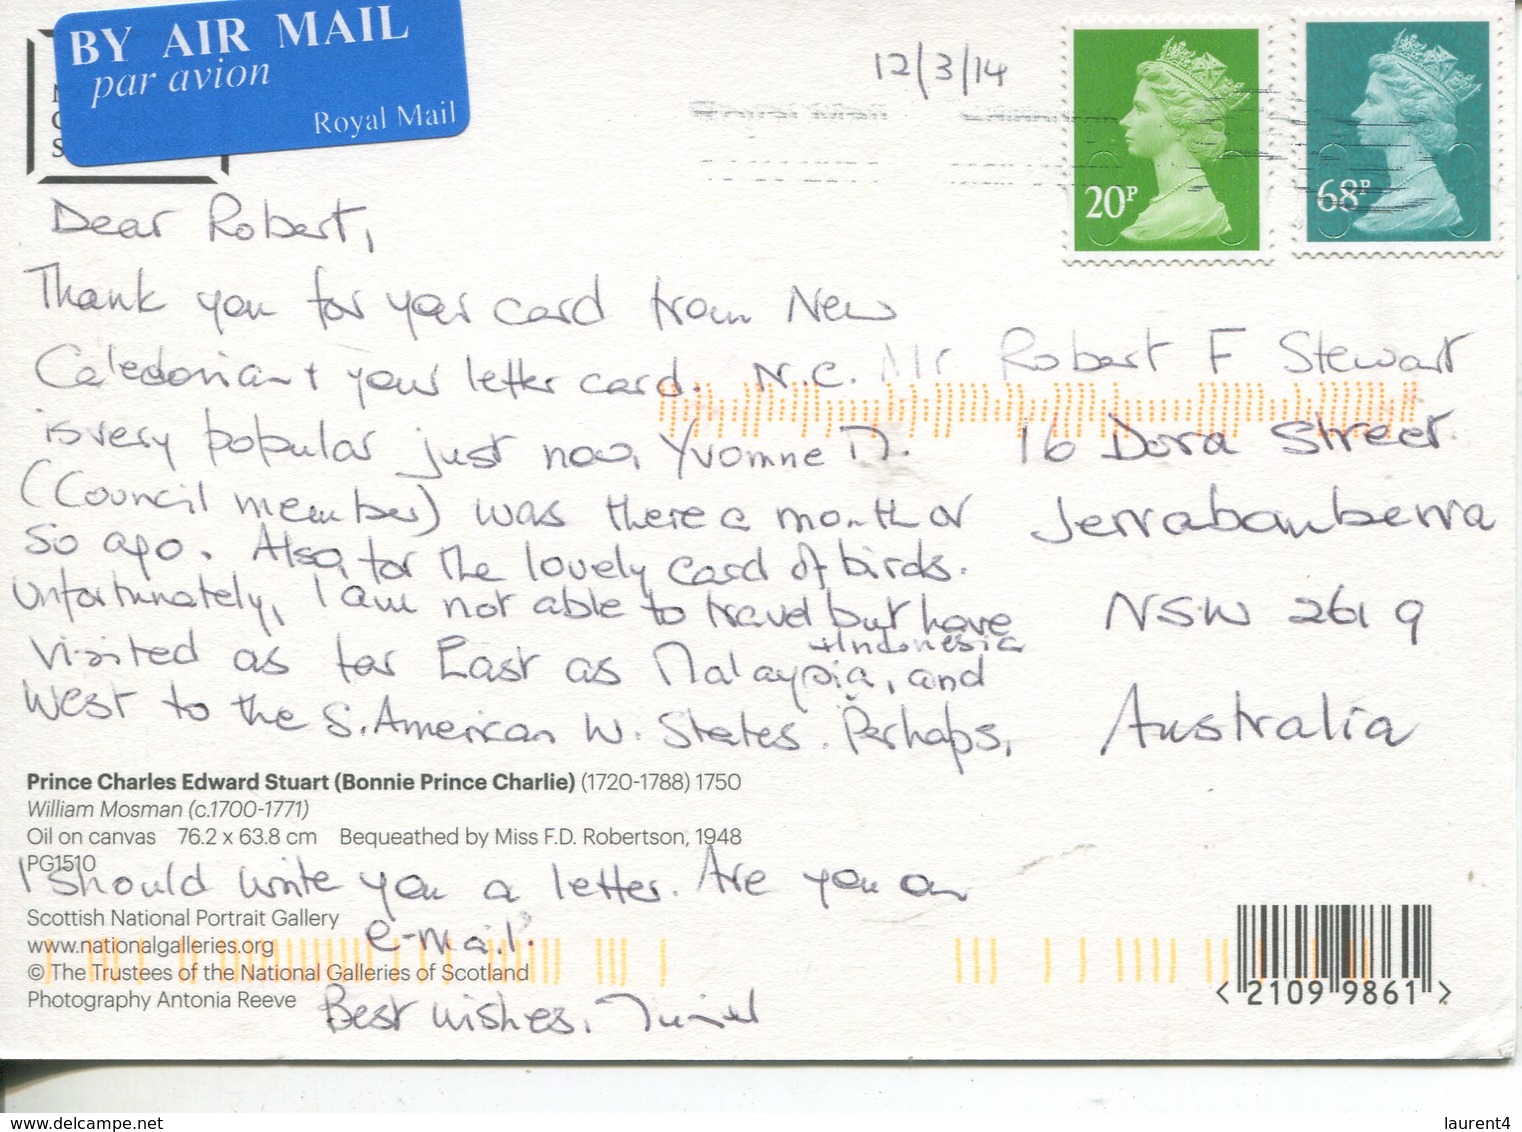 BY AIR MAIL
par avion
Royal Mail
12/3/14
20P
68P
Dear Robert,
Thank you for your card from New
Caledonian + your letter card. N.C.
is very popular just now, Yvonne M.
(Council member) was there a month or
so ago. Also, for the lovely card of birds.
Unfortunately, I am not able to travel but have
visited as far East as Malaysia, + Indonesia and
West to the S. American W. States. Perhaps,
Mr Robert F Stewart
16 Dora Street
Jerrabomberra
NSW 2619
Australia
Prince Charles Edward Stuart (Bonnie Prince Charlie) (1720-1788) 1750
William Mosman (c.1700-1771)
Oil on canvas 76.2 x 63.8 cm Bequeathed by Miss F.D. Robertson, 1948
PG1510
I should write you a letter. Are you on
e-mail?
Scottish National Portrait Gallery
www.nationalgalleries.org
© The Trustees of the National Galleries of Scotland
Photography Antonia Reeve
Best wishes,
<2109 9861>
www.delcampe.net
laurent4